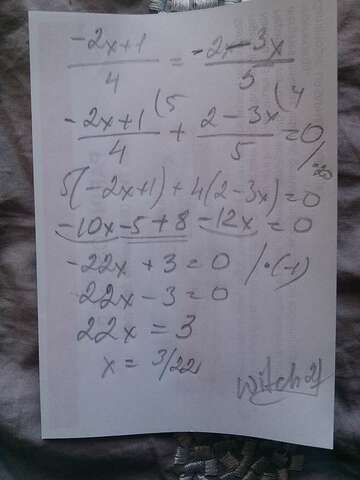 -2x+1/4 = -2-3x/5
-2x+1/4 (5 + 2-3x/5 (4 =0 /·20
5(-2x+1)+4(2-3x)=0
-10x-5+8-12x=0
-22x+3=0 /·(-1)
22x-3=0
22x=3
x=3/22
witch24